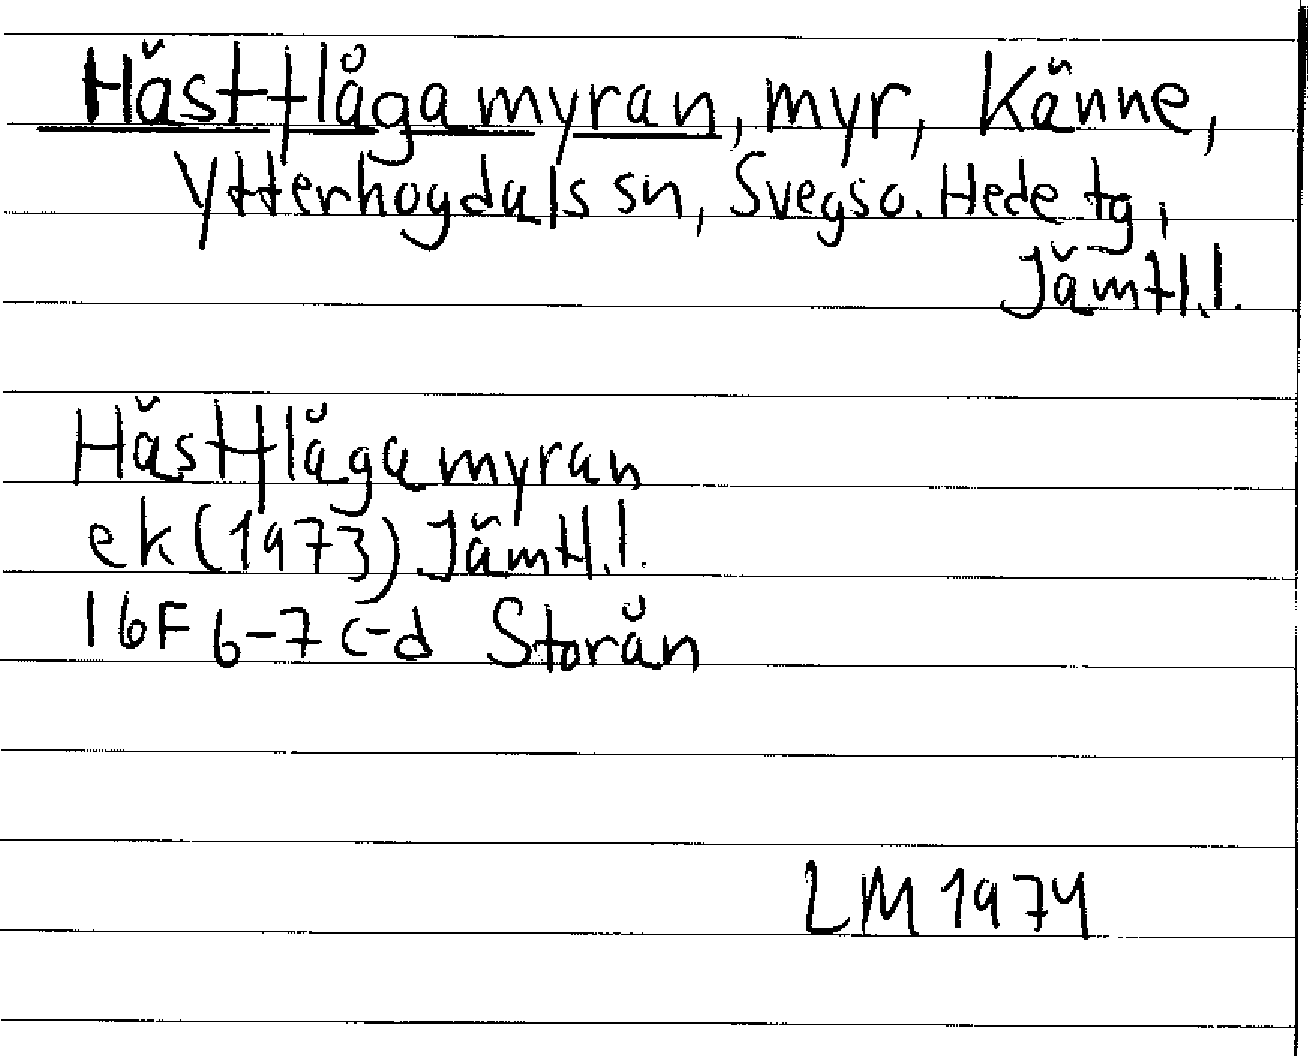 Hästflågamyran, myr, Känne,
Ytterhogdals sn, Svegs o. Hede tg,
Jämtl.l.
Hästflågamyran
ek (1973) Jämtl.l.
16F 6-7 c-d Storån
LM 1974